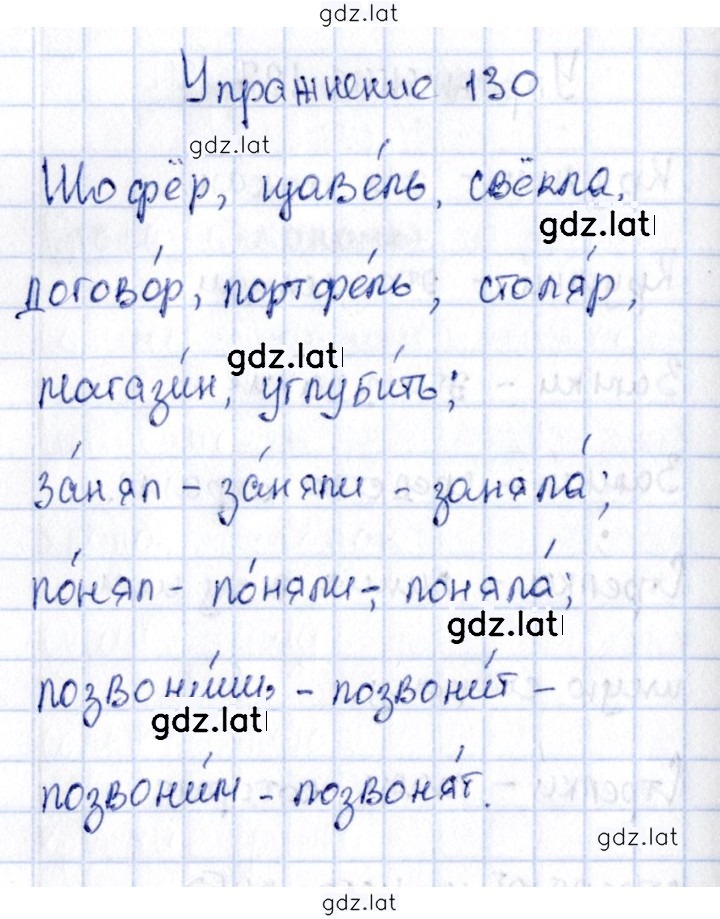 gdz.lat
Упражнение 130
gdz.lat
Шофёр, щаве́ль, свёкла,
gdz.lat
догово́р, портфе́ль, столя́р,
gdz.lat
магази́н, углуби́ть;
за́нял – за́няли – заняла́;
по́нял – по́няли –; поняла́;
gdz.lat
позвони́шь – позвони́т –
gdz.lat
позвони́м – позвоня́т.
gdz.lat
gdz.lat